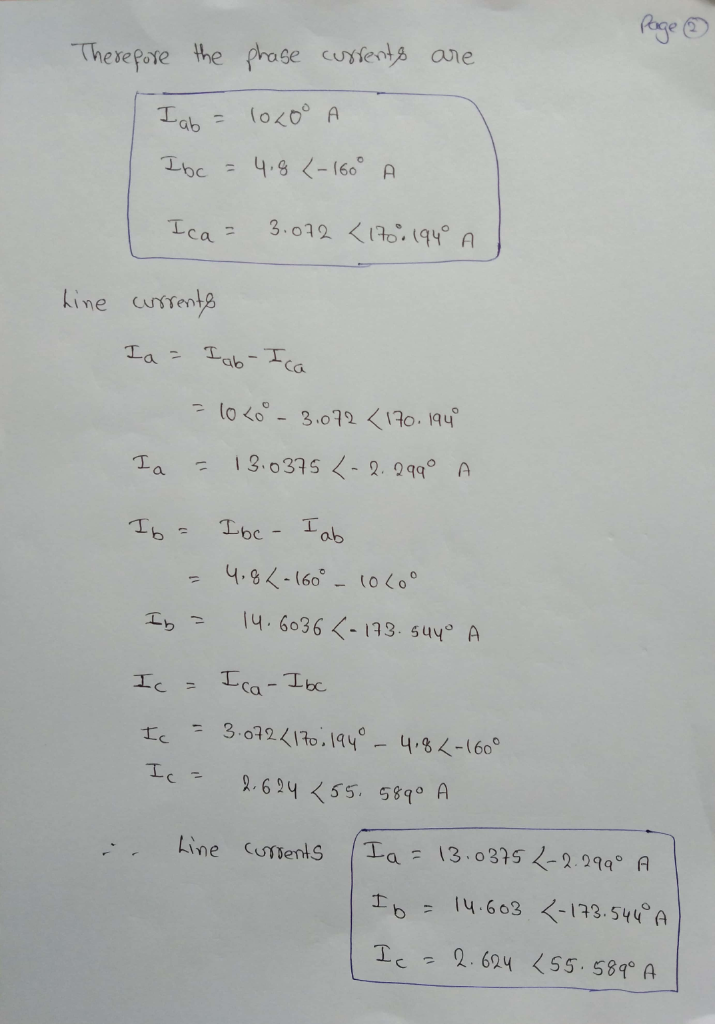 Page ②
Therefore the phase currents are
Iab = 10<0° A
Ibc = 4.8 <-160° A
Ica = 3.072 <170.194° A
Line currents
Ia = Iab - Ica
= 10<0° - 3.072 <170.194°
Ia = 13.0375 <-2.299° A
Ib = Ibc - Iab
= 4.8<-160° - 10<0°
Ib = 14.6036 <-173.544° A
Ic = Ica - Ibc
Ic = 3.072<170.194° - 4.8<-160°
Ic = 2.624 <55.589° A
∴ Line currents Ia = 13.0375 <-2.299° A
Ib = 14.603 <-173.544° A
Ic = 2.624 <55.589° A